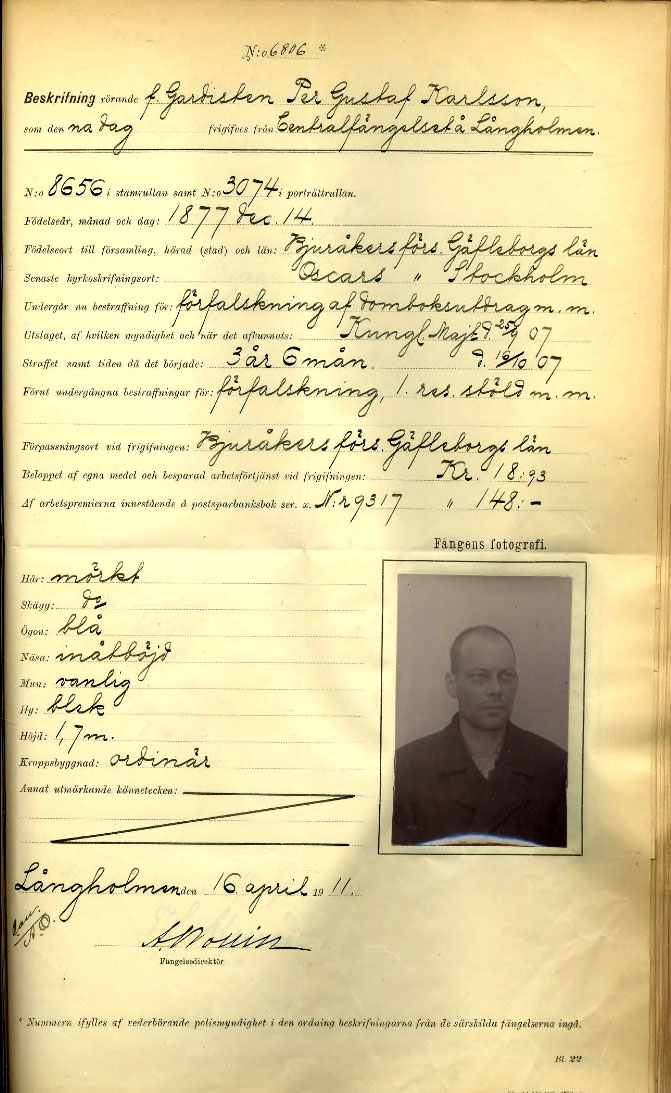 N:o 6806 *
Beskrifning rörande f. Gardisten Per Gustaf Karlsson,
som den na dag frigifves från Centralfängelset å Långholmen.
N:o 8656 i stamrullan samt N:o 3074 i porträttrullan.
Födelseår, månad och dag: 1877 Dec. 14
Födelseort till församling, härad (stad) och län: Bjuråkers förs. Gäfleborgs län
Senaste kyrkoskrifningsort: Oscars " Stockholm
Undergår nu bestraffning för: förfalskning af domboksutdrag m. m.
Utslaget, af hvilken myndighet och när det afkunnats: Kungl. Maj:t d. 25/9 07
Straffet samt tiden då det började: 3 år 6 mån. d. 16/10 07
Förut undergångna bestraffningar för: förfalskning, 1. res. stöld m. m.
Förpassningsort vid frigifningen: Bjuråkers förs. Gäfleborgs län
Beloppet af egna medel och besparad arbetsförtjänst vid frigifningen: Kr. 18:93
Af arbetspremierna innestående å postsparbanksbok ser. x. N:r 9317 " 148:-
Fångens fotografi.
Hår: mörkt
Skägg: do
Ögon: blå
Näsa: inåtböjd
Mun: vanlig
Hy: blek
Höjd: 1,7 m.
Kroppsbyggnad: ordinär
Annat utmärkande kännetecken:
Långholmen den 16 april 1911.
Fängelsedirektör
* Nummern ifylles af vederbörande polismyndighet i den ordning beskrifningarna från de särskilda fängelserna ingå.
Bl. 22